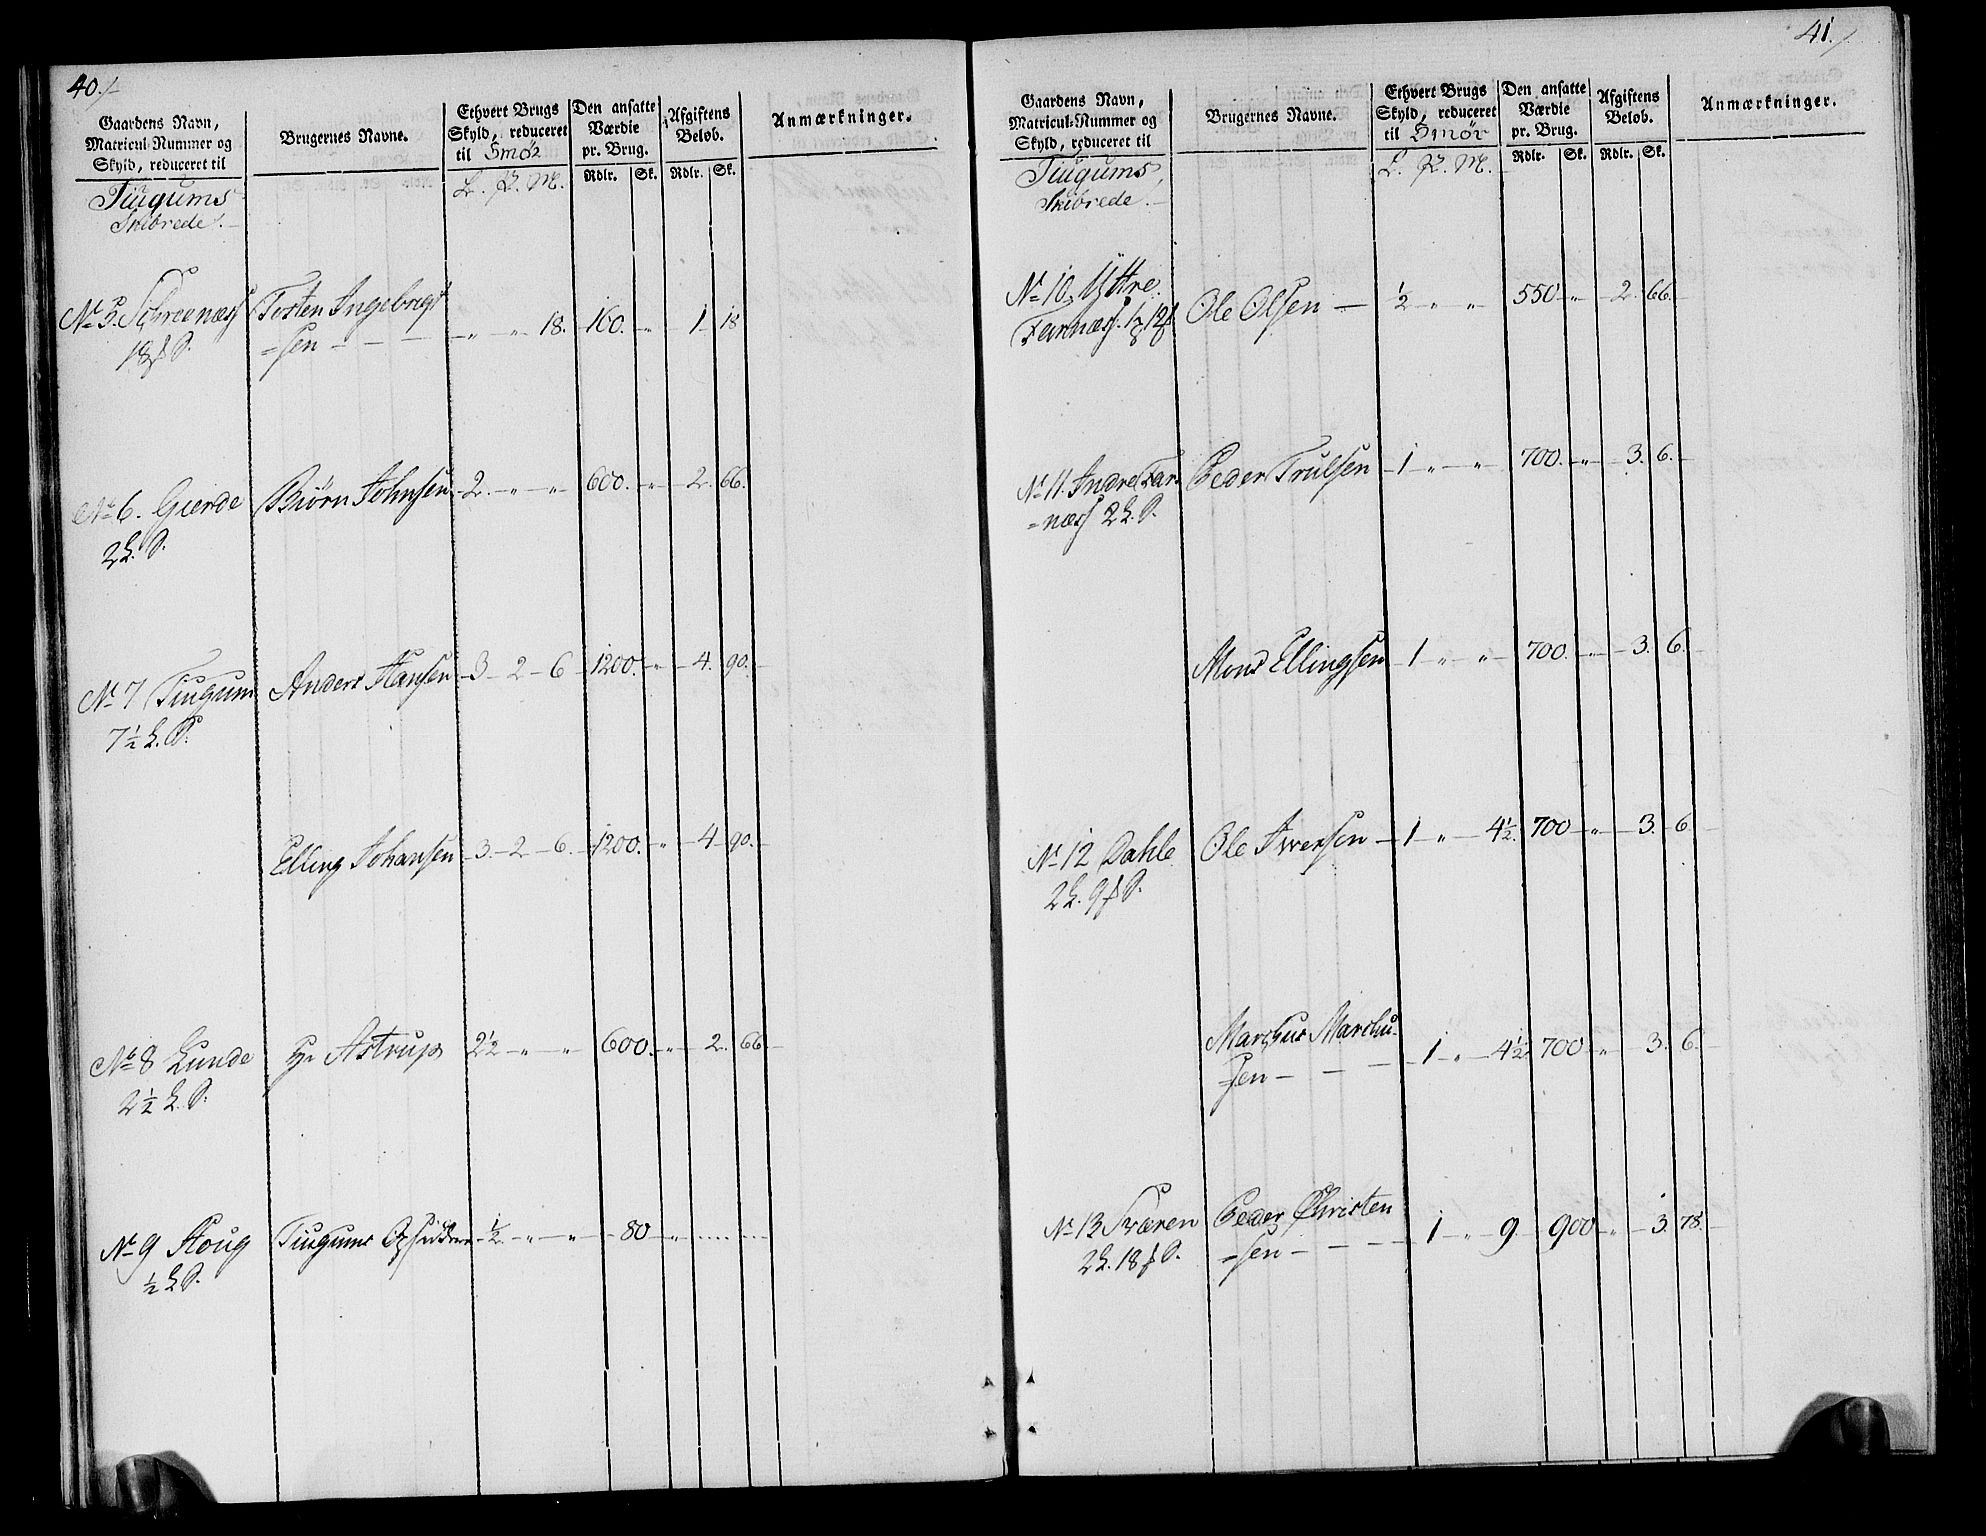 40./
Gaardens Navn,
Matricul-Nummer og
Skyld, reduceret til
Brugernes Navne.
Ethvert Brugs
Skyld, reduceret
til Smør
Den ansatte
Værdie
pr. Brug.
Afgiftens
Beløb.
Anmærkninger.
L. P. M.
Rdlr. Sk. Rdlr. Sk.
Tiugums
Skibrede.
No 5. Schreenæss Tosten Ingebrigt
=sen - - - „ „ 18. 160. „ 1 18
18 S.
No 6. Gierde Biørn Johnsen 2. „ „ 600. „ 2. 66.
2 L. S.
No 7 Tiugum Anders Hansen 3 2 6 1200. „ 4. 90.
7½ L. S.
Elling Johansen 3. 2 6. 1200. „ 4 90.
No 8 Lunde Hr Astrup 2½ „ „ 600. „ 2. 66.
2½ L. S.
No 9 Houg Tiugums Opsiddere ½ „ „ 80 „
½ L. S.
41./
Gaardens Navn,
Matricul-Nummer og
Skyld, reduceret til
Brugernes Navne.
Ethvert Brugs
Skyld, reduceret
til Smør
Den ansatte
Værdie
pr. Brug.
Afgiftens
Beløb.
Anmærkninger.
L. P. M.
Rdlr. Sk. Rdlr. Sk.
Tiugums
Skibrede.
No 10, Yttre
Farnæss. Ole Olsen ½ „ „ 550 „ 2. 66.
No 11. Indre Far Peder Trulsen 1 „ „ 700. „ 3. 6.
=næss 2 L. S.
Mons Ellingsen 1 „ „ 700. „ 3. 6.
No 12 Dahle Ole Iversen 1 „ 4½. 700 „ 3. 6.
2 L. 9 S.
Marchus Marchu
=sen - - - 1 „ 4½ 700 „ 3. 6.
No 13 Sværen Peder Christen
2 L. 18 S. =sen - - - 1 „ 9. 900 „ 3. 78.